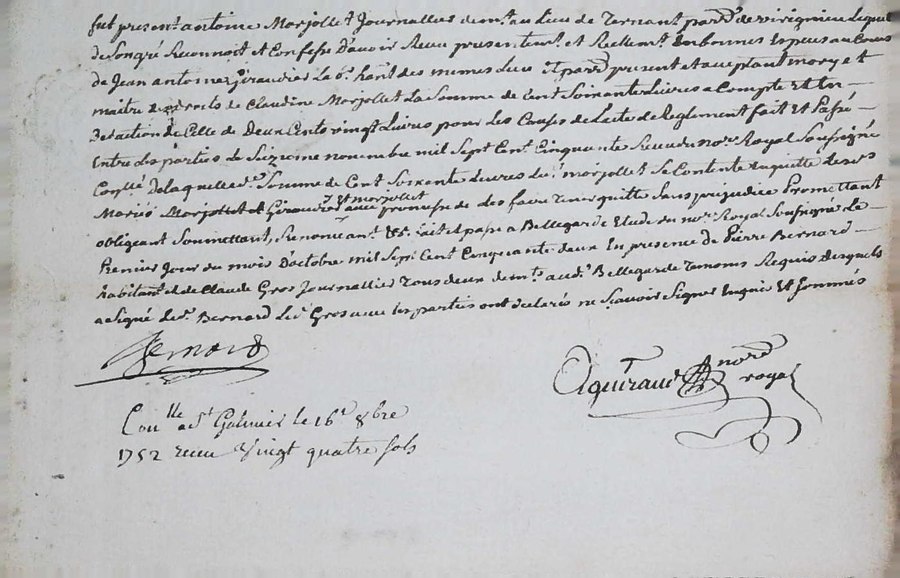 fut present antoine Morjollet Journallier demt. au lieu de Ternant parre. de virignieu lequel
de son gré Reconnoit et Confesse D'avoir Receu presentemt. et Reellemt. En bonnes Especes au Cours
de Jean antoine Giraudier Le dt. hant des memes Lieu et parre present et acceptant mary et
maitre des droits de Claudine Morjollet La Somme de Cent Soixante Livres a Compte Et En
Detaction de Celle de Deux Cent vingt Livres pour Les Causes de Lacte de Reglement fait Et Passé
Entre des parties le Seizieme novembre mil Sept Cent Cinquante Receu du nore. Royal Soussigné
de laquelle de. Somme de Cent Soixante Livres le dt. morjollet Se Contente En quitte
Mariés Morjollet et Giraudier avec promesse de des faire tenir quitte Sans prejudice Promettant
et morjollet
obligeant Soumettant, Renonceant &c. fait et passé a Bellegarde Etude du nore. Royal Soussigné Le
Premier Jour du mois Doctobre mil Sept Cent Cinquante deux En presence de Pierre Bernard
habitant et de Claude Gros Journallier Tous deux demts. audt. Bellegarde Temoins Requis Desquels
a Signé Ledt. Bernard Ledt. Gros avec les parties ont declarés ne Sçavoir Signer Enquis Et Sommés
Bernard
Aguiraud nore
royal
Conlle a St Galmier le 16e 8bre
1752 receu Vingt quatre sols